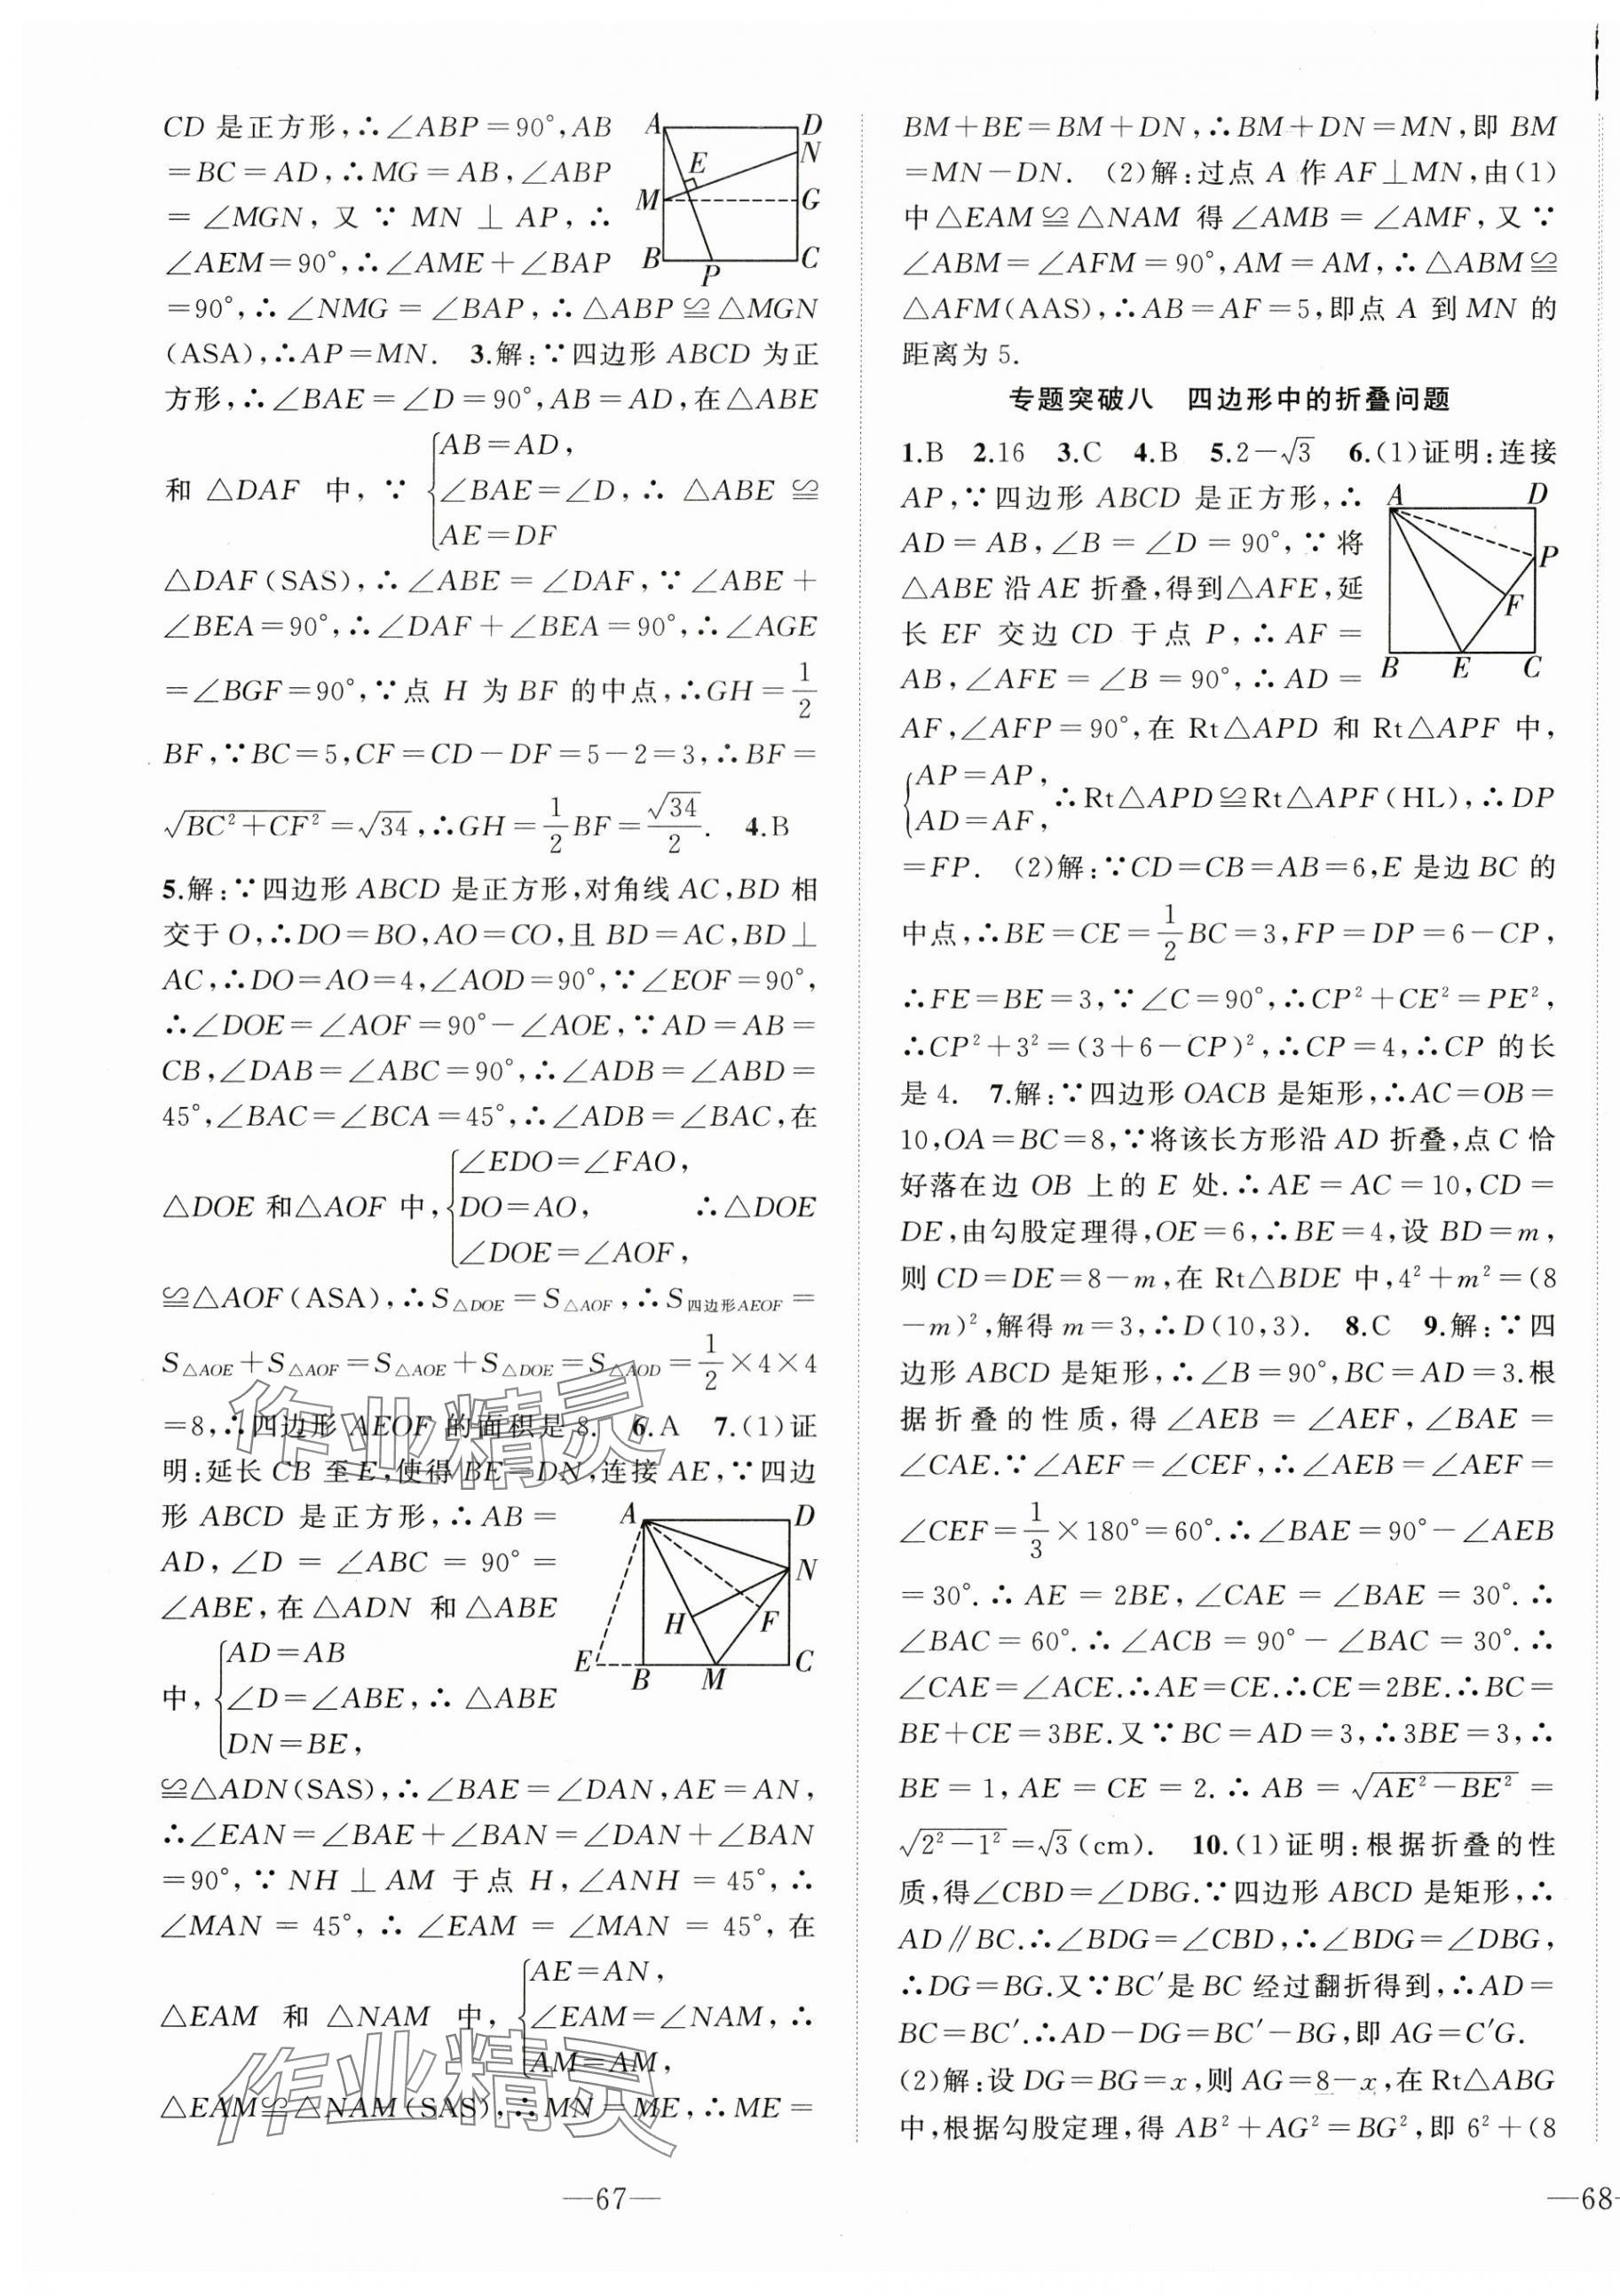 CD 是正方形,∴∠ABP=90°,AB
=BC=AD,∴MG=AB,∠ABP
=∠MGN,又∵MN⊥AP,∴
∠AEM=90°,∴∠AME+∠BAP
=90°,∴∠NMG=∠BAP,∴△ABP≌△MGN
(ASA),∴AP=MN. 3.解:∵四边形 ABCD 为正
方形,∴∠BAE=∠D=90°,AB=AD,在△ABE
和 △DAF 中,∵ {AB=AD, ∠BAE=∠D, AE=DF ∴ △ABE≌
△DAF(SAS),∴∠ABE=∠DAF,∵∠ABE+
∠BEA=90°,∴∠DAF+∠BEA=90°,∴∠AGE
=∠BGF=90°,∵点 H 为 BF 的中点,∴GH=1/2
BF,∵BC=5,CF=CD-DF=5-2=3,∴BF=
√(BC²+CF²)=√34,∴GH=1/2BF=√34/2. 4.B
5.解:∵四边形 ABCD 是正方形,对角线 AC,BD 相
交于 O,∴DO=BO,AO=CO,且 BD=AC,BD⊥
AC,∴DO=AO=4,∠AOD=90°,∵∠EOF=90°,
∴∠DOE=∠AOF=90°-∠AOE,∵AD=AB=
CB,∠DAB=∠ABC=90°,∴∠ADB=∠ABD=
45°,∠BAC=∠BCA=45°,∴∠ADB=∠BAC,在
△DOE 和△AOF 中,{∠EDO=∠FAO, DO=AO, ∠DOE=∠AOF, ∴△DOE
≌△AOF(ASA),∴S△DOE=S△AOF,∴S四边形AEOF=
S△AOE+S△AOF=S△AOE+S△DOE=S△AOD=1/2×4×4
=8,∴四边形 AEOF 的面积是 8. 6.A 7.(1)证
明:延长 CB 至 E,使得 BE=DN,连接 AE,∵四边
形 ABCD 是正方形,∴AB=
AD,∠D=∠ABC=90°=
∠ABE,在△ADN 和△ABE
中,{AD=AB ∠D=∠ABE, DN=BE, ∴ △ABE
≌△ADN(SAS),∴∠BAE=∠DAN,AE=AN,
∴∠EAN=∠BAE+∠BAN=∠DAN+∠BAN
=90°,∵NH⊥AM 于点 H,∠ANH=45°,∴
∠MAN=45°,∴∠EAM=∠MAN=45°,在
△EAM 和 △NAM 中,{AE=AN, ∠EAM=∠NAM, AM=AM, ∴
△EAM≌△NAM(SAS),∴MN=ME,∴ME=
A D N E M G B P C
A D N H F E B M C
作业精灵
作业精灵
—67—
BM+BE=BM+DN,∴BM+DN=MN,即 BM
=MN-DN. (2)解:过点 A 作 AF⊥MN,由(1)
中△EAM≌△NAM 得∠AMB=∠AMF,又∵
∠ABM=∠AFM=90°,AM=AM,∴△ABM≌
△AFM(AAS),∴AB=AF=5,即点 A 到 MN 的
距离为 5.
专题突破八 四边形中的折叠问题
1.B 2.16 3.C 4.B 5.2-√3 6.(1)证明:连接
AP,∵四边形 ABCD 是正方形,∴
AD=AB,∠B=∠D=90°,∵将
△ABE 沿 AE 折叠,得到△AFE,延
长 EF 交边 CD 于点 P,∴AF=
AB,∠AFE=∠B=90°,∴AD=
AF,∠AFP=90°,在 Rt△APD 和 Rt△APF 中,
{AP=AP, AD=AF, ∴Rt△APD≌Rt△APF(HL),∴DP
=FP. (2)解:∵CD=CB=AB=6,E 是边 BC 的
中点,∴BE=CE=1/2BC=3,FP=DP=6-CP,
∴FE=BE=3,∵∠C=90°,∴CP²+CE²=PE²,
∴CP²+3²=(3+6-CP)²,∴CP=4,∴CP 的长
是 4. 7.解:∵四边形 OACB 是矩形,∴AC=OB=
10,OA=BC=8,∵将该长方形沿 AD 折叠,点 C 恰
好落在边 OB 上的 E 处.∴AE=AC=10,CD=
DE,由勾股定理得,OE=6,∴BE=4,设 BD=m,
则 CD=DE=8-m,在 Rt△BDE 中,4²+m²=(8
-m)²,解得 m=3,∴D(10,3). 8.C 9.解:∵四
边形 ABCD 是矩形,∴∠B=90°,BC=AD=3.根
据折叠的性质,得∠AEB=∠AEF,∠BAE=
∠CAE.∵∠AEF=∠CEF,∴∠AEB=∠AEF=
∠CEF=1/3×180°=60°.∴∠BAE=90°-∠AEB
=30°.∴AE=2BE,∠CAE=∠BAE=30°.∴
∠BAC=60°.∴∠ACB=90°-∠BAC=30°.∴
∠CAE=∠ACE.∴AE=CE.∴CE=2BE.∴BC=
BE+CE=3BE.又∵BC=AD=3,∴3BE=3,∴
BE=1,AE=CE=2.∴AB=√(AE²-BE²)=
√(2²-1²)=√3(cm). 10.(1)证明:根据折叠的性
质,得∠CBD=∠DBG.∵四边形 ABCD 是矩形,∴
AD∥BC.∴∠BDG=∠CBD,∴∠BDG=∠DBG,
∴DG=BG.又∵BC′是 BC 经过翻折得到,∴AD=
BC=BC′.∴AD-DG=BC′-BG,即 AG=C′G.
(2)解:设 DG=BG=x,则 AG=8-x,在 Rt△ABG
中,根据勾股定理,得 AB²+AG²=BG²,即 6²+(8
A D P F B E C
—68